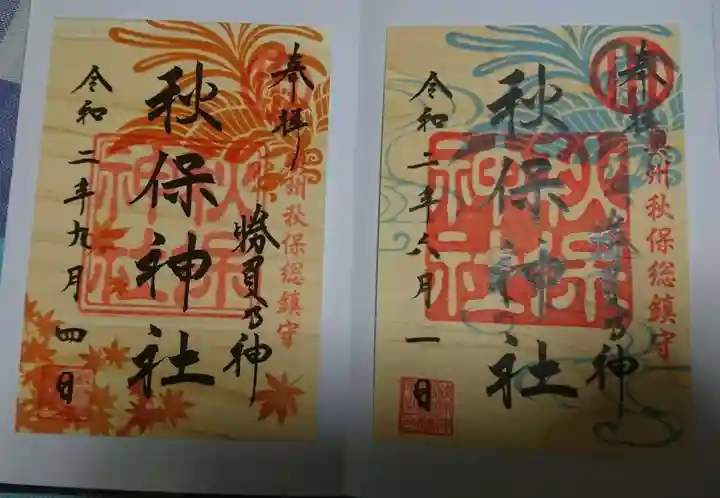 奉拝
奥州秋保総鎮守
勝負乃神
秋保神社
秋保神社
令和二年八月一日
奉拝
州秋保総鎮守
勝負乃神
秋保神社
秋保神社
令和二年九月四日